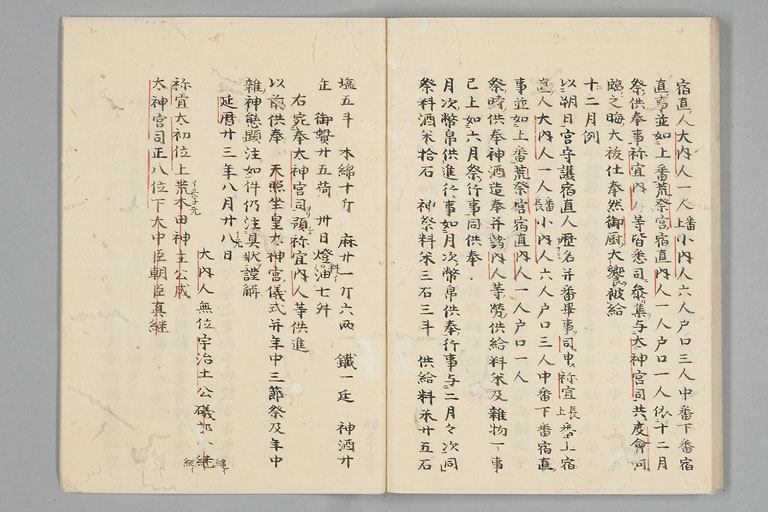 宿直人大内人一人上番小内人六人戸口三人中番下番宿
直事並如上番荒祭宮宿直内人一人戸口一人依十二月
祭供奉事祢宜内人等皆悉司参集与大神宮司共度會河
臨之晦大祓仕奉然御厨大饗被給
十二月例
以朔日宮守護宿直人歴名并番畢事司申祢宜長番上宿
直人大内人一人番長小内人六人戸口三人中番下番宿直
事並如上番荒祭宮宿直内人一人戸口一人
祭時供奉神酒造奉并諸内人等労供給料米及雑物一事
已上如六月祭行事同供奉
月次幣帛供進行事如月次幣帛供奉行事与二月月次同
祭料酒米拾石 神祭料米三石三斗 供給料米廿五石
塩五斗 木綿十斤 麻廿一斤六両 鐵一廷 神酒廿
缶 御贄廿五荷 卅日燈油七升
右宛奉大神宮司頭祢宜内人等供進
以前供奉 天照坐皇大神宮儀式并年中三節祭及年中
雑神態顕注如件仍注具状謹解
延暦廿三年八月廿八日
大内人無位宇治土公礒部小紲
祢宜大初位上荒木田神主公成
大神宮司正八位下大中臣朝臣真継